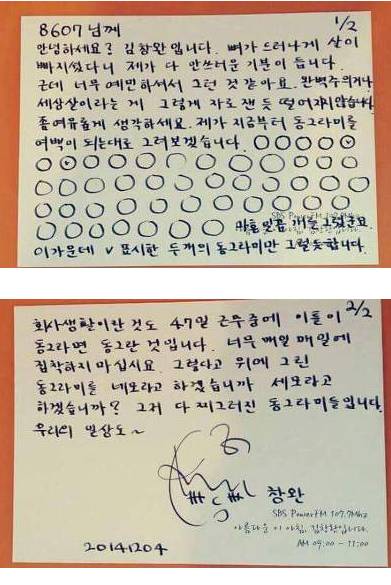 8607님께 1/2
안녕하세요? 김창완입니다. 뼈가 드러나게 살이
빠지셨다니 제가 다 안쓰러운 기분이 듭니다.
근데 너무 예민하셔서 그런 것 같아요. 완벽주의거나
세상살이라는 게 그렇게 자로 잰 듯 떨어지지 않습니다.
좀 여유롭게 생각하세요. 제가 지금부터 동그라미를
여백이 되는대로 그려보겠습니다.
마흔 일곱 개를 그렸군요.
SBS PowerFM 107.7Mhz
이 가운데 v 표시한 두 개의 동그라미만 그럴듯합니다.
회사생활이란 것도 47일 근무 중에 이틀이 2/2
동그라면 동그란 것입니다. 너무 매일 매일에
집착하지 마십시요. 그렇다고 위에 그린
동그라미를 네모라고 하겠습니까 세모라고
하겠습니까? 그저 다 찌그러진 동그라미들입니다.
우리의 일상도~
창완
SBS PowerFM 107.7Mhz
아름다운 이 아침, 김창완입니다.
AM 09:00 - 11:00
20141204